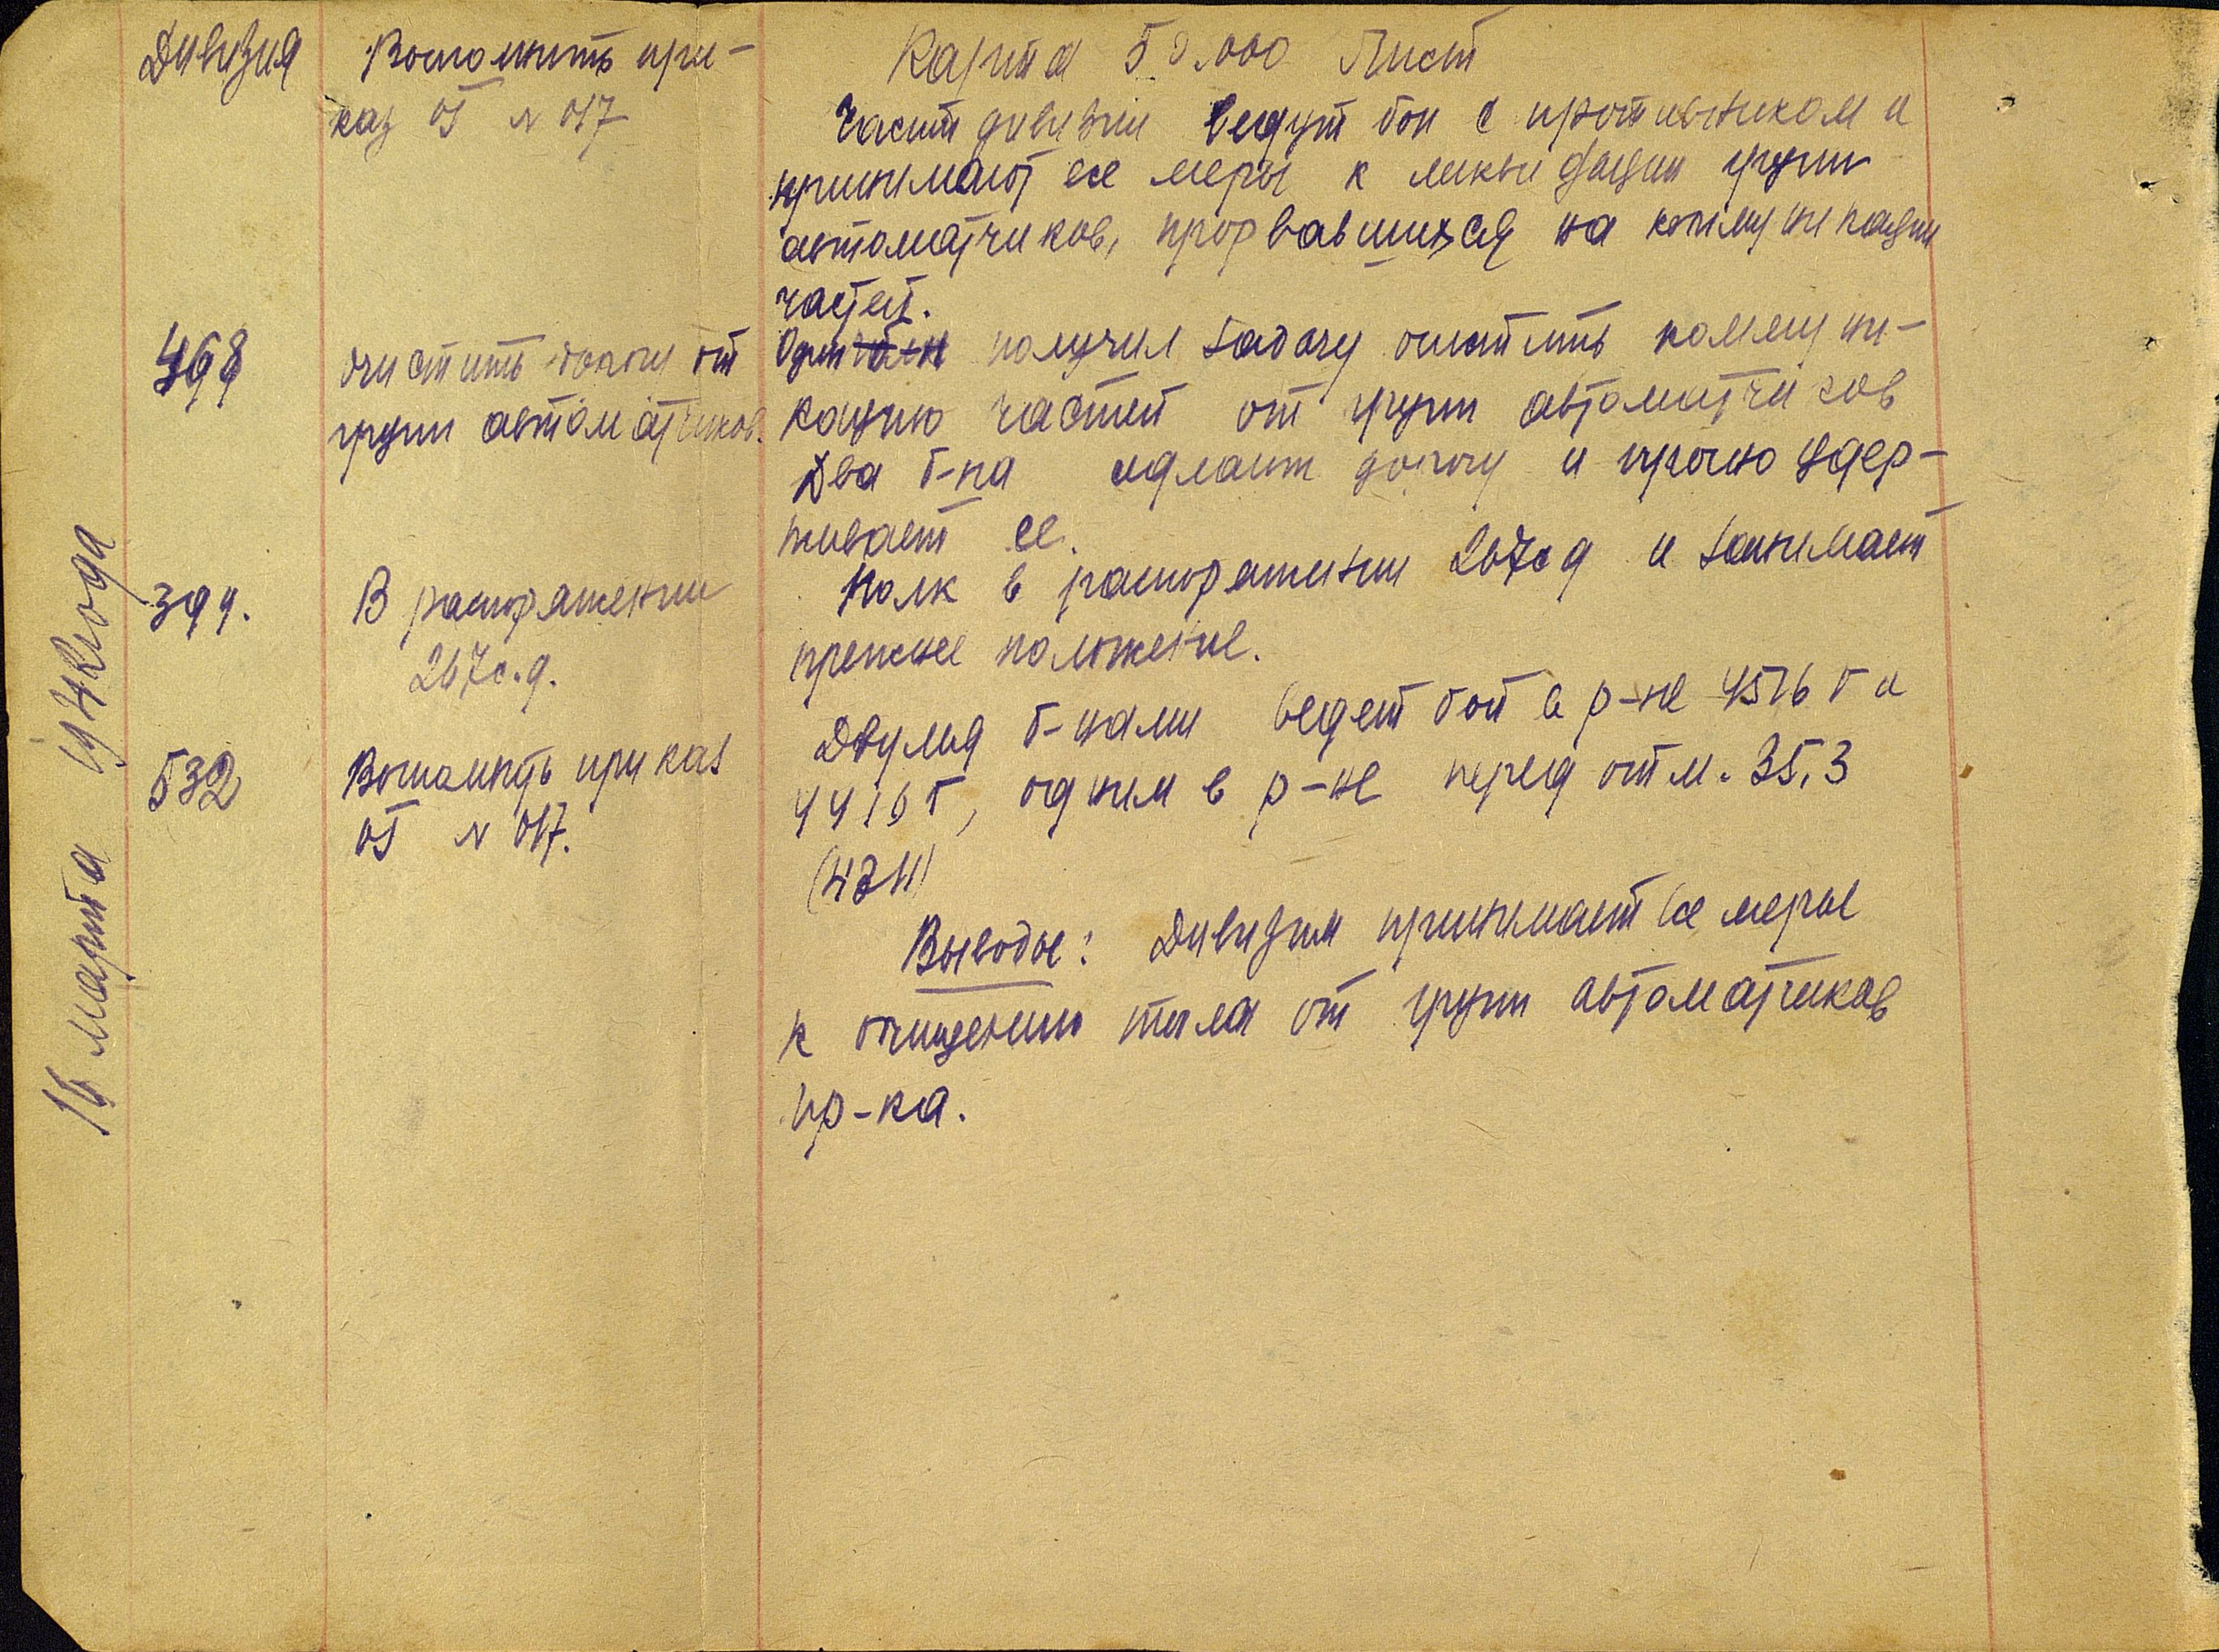 16 марта 1942 года
Дивизия
Выполнить при-
каз № 017
468
очистить дорогу от
групп автоматчиков.
399.
В распоряжении
267 с.д.
532
Выполнить приказ
№ 017.
Карта 50.000 Лист
Части дивизии ведут бои с противником и
принимают все меры к ликвидации групп
автоматчиков, прорвавшихся на коммуникации
частей.
Один б-н получил задачу очистить коммуни-
кацию частей от групп автоматчиков
Два б-на дорогу и прочно удер-
живает ее.
Полк в распоряжении 267 сд и занимает
прежнее положение.
Двумя б-нами ведет бой в р-не 4516 г и
4416 г, одним в р-не перед отм. 35,3
Выводы: Дивизия принимает все меры
к очищению тыла от групп автоматчиков
пр-ка.